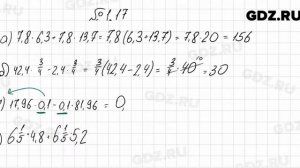 GDZ.RU
№1.17
а) 7,8·6,3+7,8·13,7=7,8(6,3+13,7)=7,8·20=156
б) 42,4·3/4-2,4·3/4=3/4(42,4-2,4)=3/4·40¹⁰=30
) 17,96·0,1-0,1·81,96=0,
) 6 1/3·4,8+6 1/3·5,2
GDZ.RU